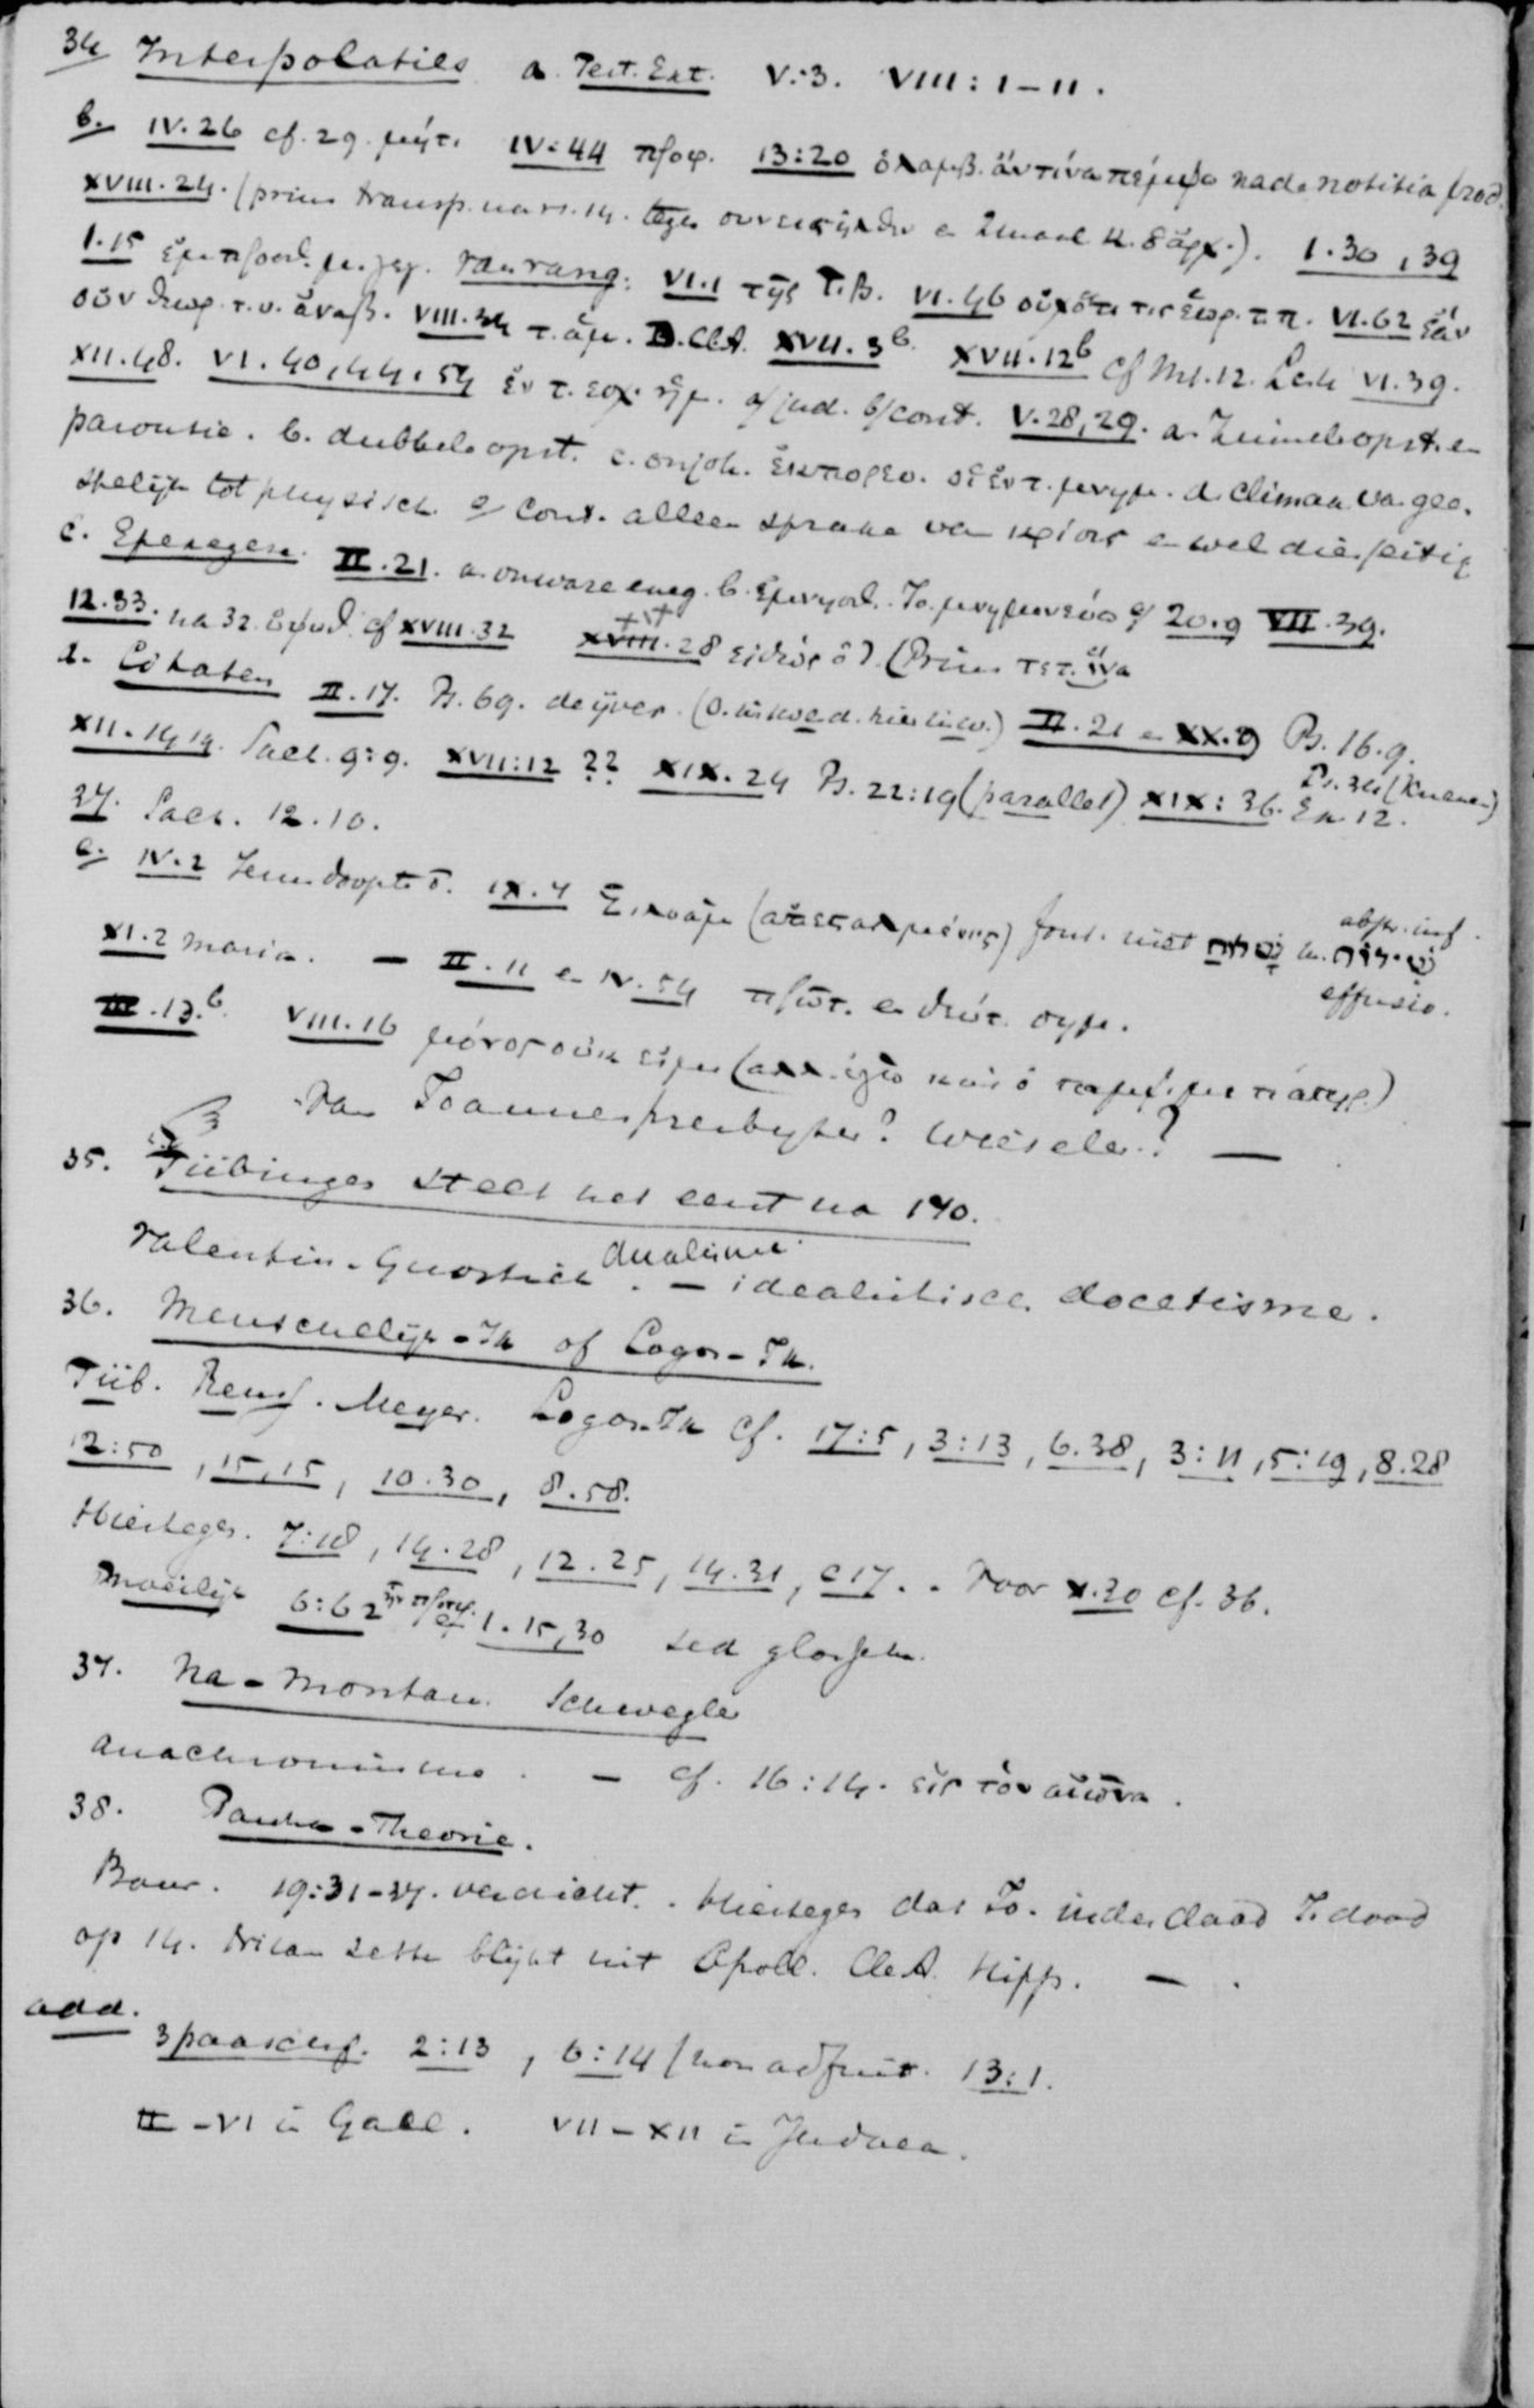 34 Interpolaties a. Test. Ext. V:3. VIII: 1–11.
b. IV.26 cf. 29. μήτι IV:44 προφ. 13:20 ὁ λαμβ. ἄν τινα πέμψω nade notitia prod.
XVIII.24. (prius transp. na vs. 14. tegen συνεισῆλθεν en 2maal κ. δ ἀρχ.). 1.30, 39
1.15 ἔμπροσθ. μ. γεγ. van rang. VI.1 τῆς Τιβ. VI.46 οὐχ ὅτι τις ἑωρ. τ. π. VI.62 ἐὰν
οὖν θεωρ. τ. υ. ἀναβ. VIII.34 τ. ἁμ. D. Cl.A. XVII.3b. XVII.12b cf VI.39.
XII.48. VI.40, 44, 54 ἐν τ. εσχ. ἡμ. a/ jud. b/ cont. V.28, 29. a.
parousie. b. dubbele opst. c. onjoh. ἐκπορευ. οἱ ἐν τ. μνημ. d. climax va. gee-
stelijk tot physisch e/ Cont. alleen sprake van κρίσις en wel
c. Epexegese. II.21. a. onware exeg. b. ἐμνησθ. Ἰο. μνημονεύω 20.9 VII.39.
12.33. na 32. ὑψωθ. cf XVIII.32 XVIII.28 (Prius τετ. ἵνα
d. Citaten II.17. Ps. 69. de ijver. II.21 en XX.9 Ps. 16.9.
XII.14, 19. Zach. 9:9. XVII:12 ?? XIX.24 Ps. 22:19 (parallel) XIX:36. Ex. 12. Ps. 34 (Kuenen)
37. Zach. 12.10.
e. IV.2 Jezus doopte IX.7 Σιλωάμ (ἀπεσταλμένος) fout. niet abstr. inf.
XI.2 Maria. – II.11 en IV.54 πρῶτ. en δεύτ. σημ. effusio.
III.13.b. VIII.16 μόνος οὐκ εἰμι (αλλ ἐγὼ καὶ ὁ πέμψ. με πατηρ.)
Van Joannes presbyter? Wieseler? —
35. Tübinger stelt het eerst na 170.
Valentin. Gnostiek. dualisme. – idealistisch docetisme.
36. Menschelijk-Ik of Logos-Ik.
Tüb. Reuss. Meyer. Logos-Ik cf. 17:5, 3:13, 6.38, 3:11, 5:19, 8.28
12:50, 15,15, 10.30, 8.58.
Hiertegen. 7:18, 14.28, 12.25, 14.31, c17. . Voor X.30 cf. 36.
Moeilijk 6:62 cf 1.15,30 sed glossen.
37. Na-montan. Schwegler
anachronisme. – cf. 16:14. εἰς τὸν αἰῶνα.
38. Pascha-Theorie.
Baur. 19:31-37. verdicht. . Hiertegen dat Jo. inderdaad J. dood
op 14. Nisan zette blijkt uit Apoll. Cl.A. Hipp. — .
add.
3 paaschf. 2:13, 6:14 (non adfuit. 13:1.
II–VI in Galil. VII–XII in Judaea.